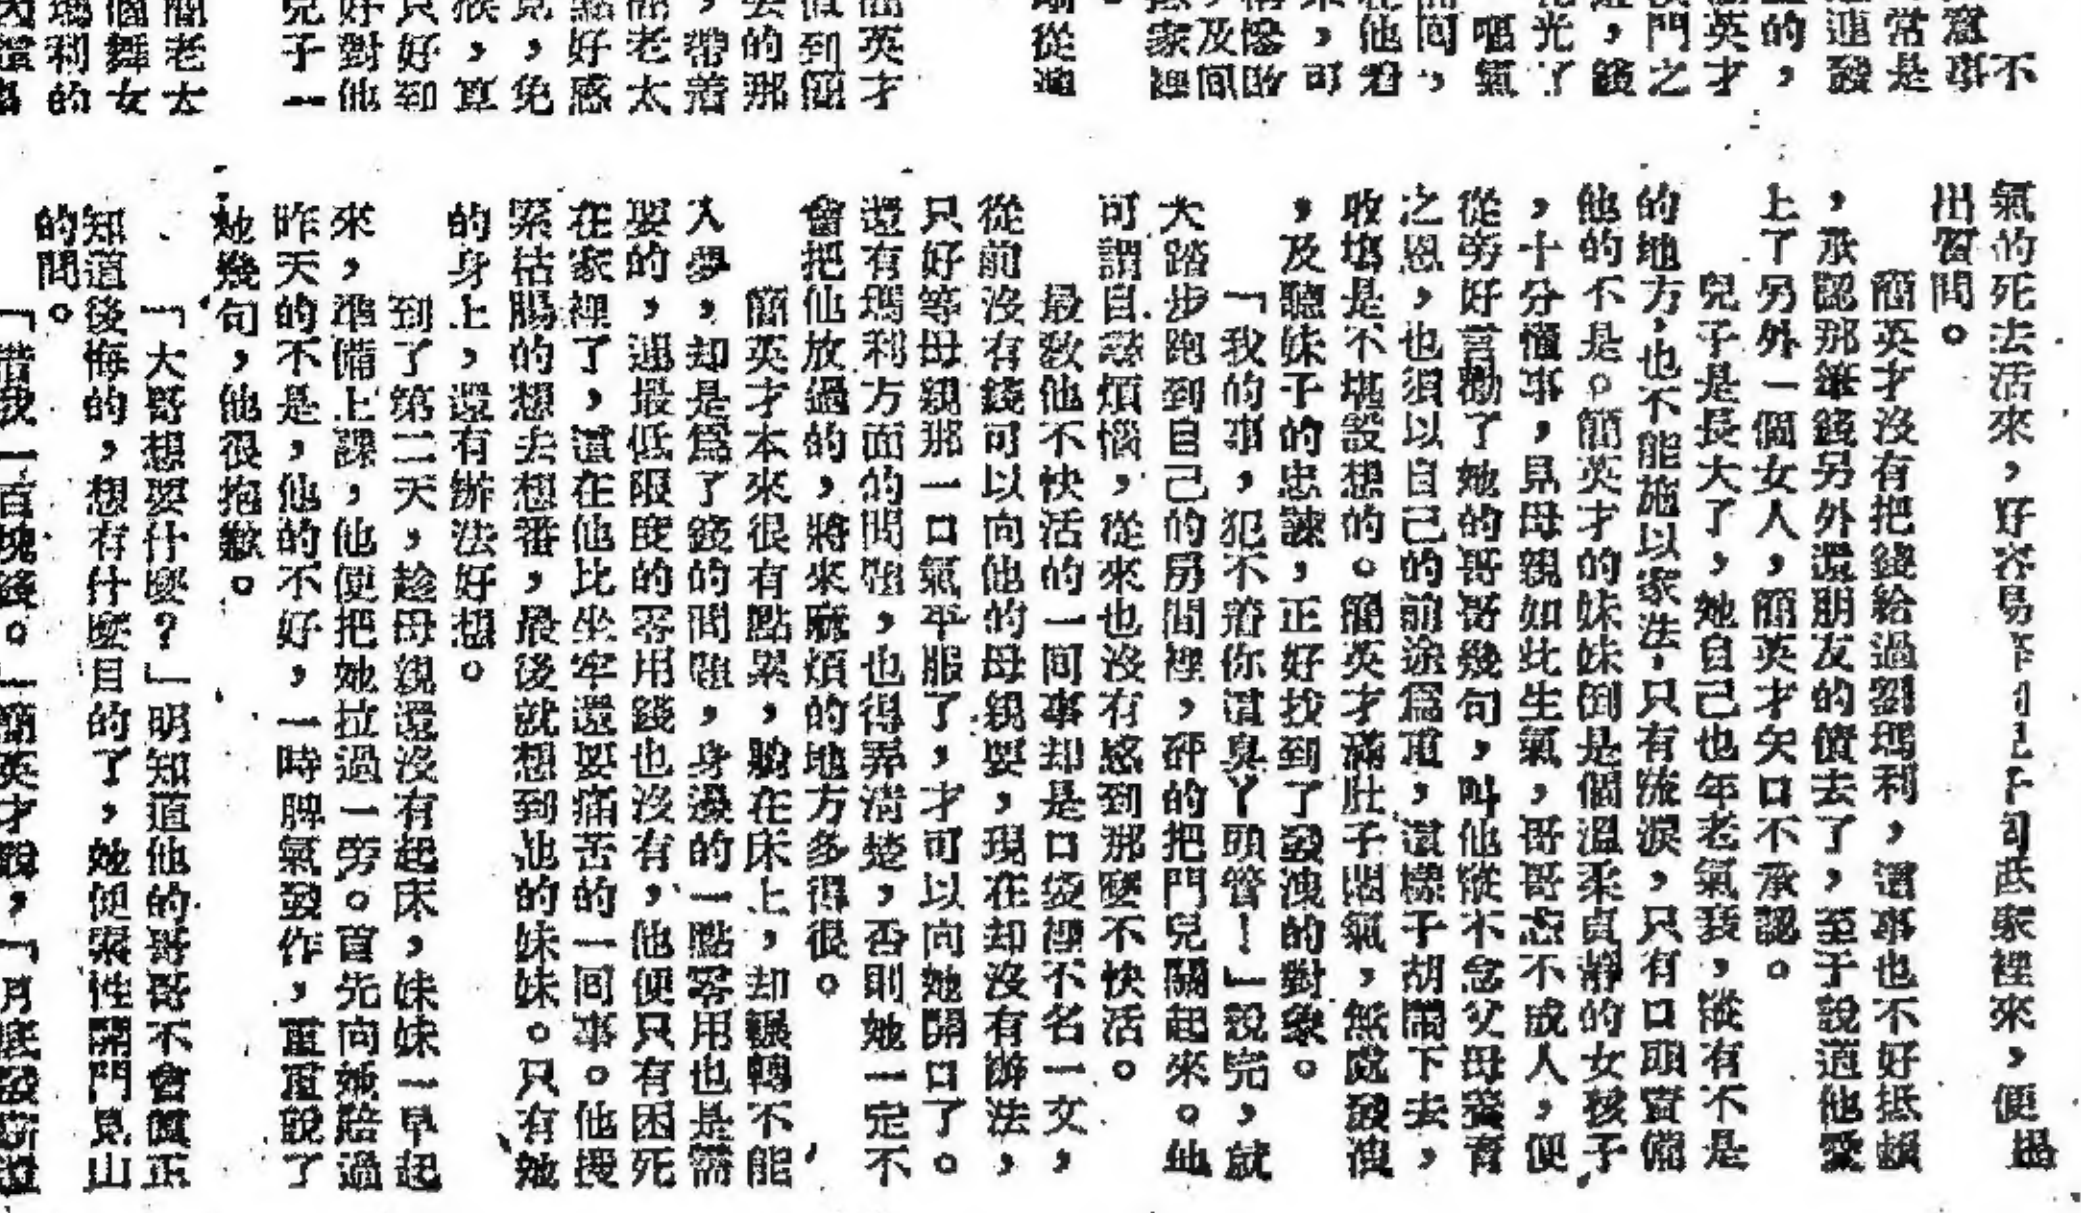 不
意事
常是
連發
的，
英才
門之
，錢
光了
嘔氣
同，
他君
，可
及同
家裡
瑜從
英才
直到簡
的那
，帶着
老太
好感
，免
，算
只好到
好對他
兒子一
簡老太
個舞女
瑪利的
氣的死去活來，好容易司武家裡來，便揚
出習問。
簡英才沒有把錢給過劉瑪利，這事也不好抵賴
，承認那筆錢另外還朋友的債去了，至于說道他愛
上了另外一個女人，簡英才矢口不承認。
兒子是長大了，她自己也年老氣衰，縱有不是
的地方，也不能施以家法，只有流淚，只有口頭責備
他的不是。簡英才的妹妹倒是個溫柔貞靜的女孩子
，十分懂事，見母親如此生氣，哥哥恁不成人，便
從旁好言勸了她的哥哥幾句，叫他縱不念父母養育
之恩，也須以自己的前途爲重，這樣子胡鬧下去，
收塲是不堪設想的。簡英才滿肚子悶氣，無處發洩
，及聽妹子的忠諫，正好找到了發洩的對象。
「我的事，犯不着你這臭丫頭管！」說完，就
大踏步跑到自己的房間裡，砰的把門兒關起來。他
可謂自尋煩惱，從來也沒有感到那麼不快活。
最教他不快活的一同事却是口袋裡不名一文，
從前沒有錢可以向他的母親要，現在却沒有辦法，
只好等母親那一口氣平服了，才可以向她開口了。
還有瑪利方面的問題，也得弄清楚，否則她一定不
會把他放過的，將來麻煩的地方多得很。
簡英才本來很有點累，躺在床上，却輾轉不能
入夢，却是爲了錢的問題，身邊的一點零用也是需
要的，連最低限度的零用錢也沒有，他便只有困死
在家裡了，這在他比坐牢還要痛苦的一同事。他搜
索枯腸的想去想番，最後就想到他的妹妹。只有她
的身上，還有辦法好想。
到了第二天，趁母親還沒有起床，妹妹一早起
來，準備上課，他便把她拉過一旁。首先向她賠過
昨天的不是，他的不好，一時脾氣發作，重重說了
她幾句，他很抱歉。
「大哥想要什麼？」明知道他的哥哥不會眞正
知道後悔的，想有什麼目的了，她便索性開門見山
的問。
「借我一百塊錢。」簡英才說，「月底發薪